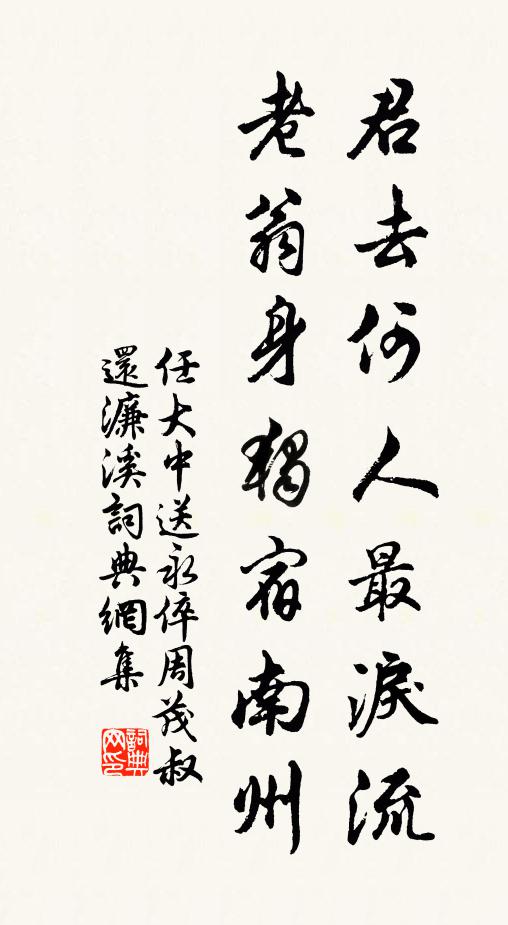 君去何人最淚流
老翁身獨宿南州
任大中送永倅周茂叔
還濂溪詞典網集
詞典
网印